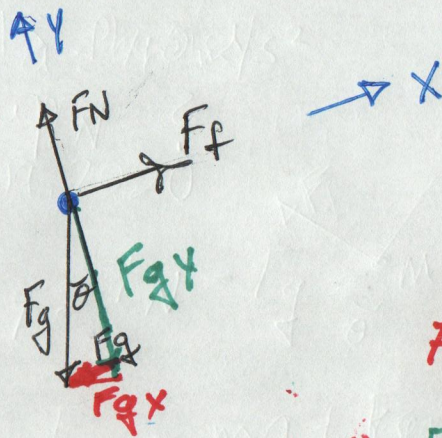 Y
X
FN
Ff
FgY
Fg
θ
Fg
Fgx